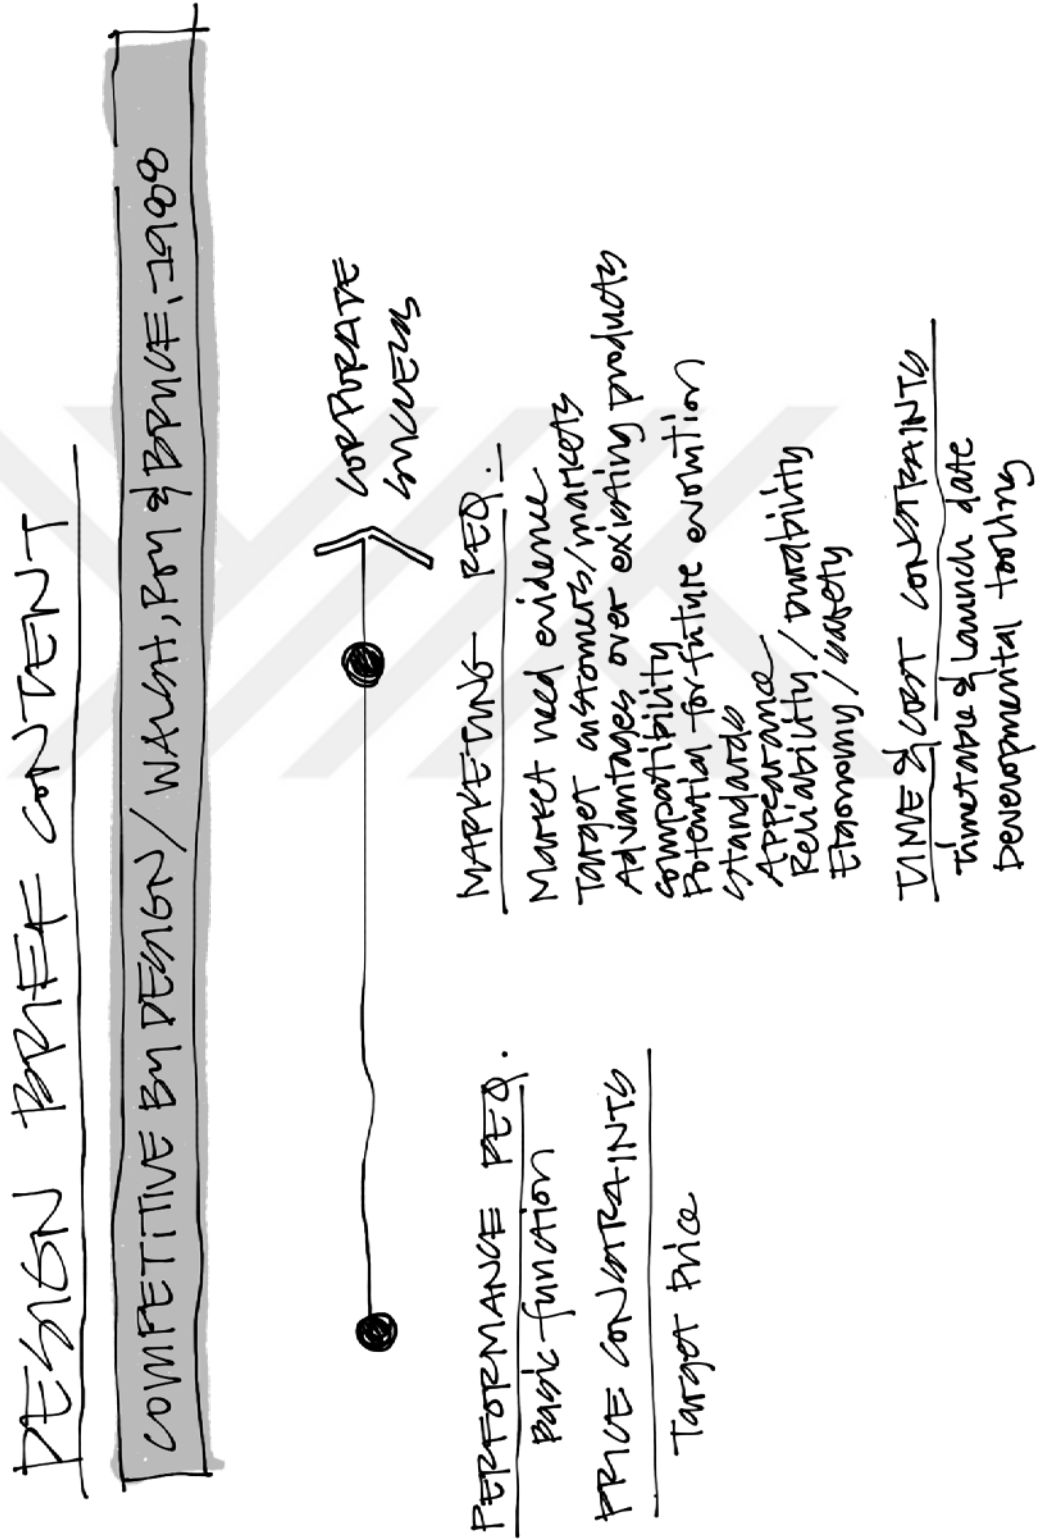 DESIGN BRIEF CONTENT
COMPETITIVE BY DESIGN / WALSH, ROY & BRUCE, 1988
CORPORATE
SUCCESS
PERFORMANCE REQ.
Basic function
PRICE CONSTRAINTS
Target Price
MARKETING REQ.
Market need evidence
Target customers/markets
Advantages over existing products
compatibility
Potential for future evolution
Standards
Appearance
Reliability / durability
Ergonomy / safety
TIME & COST CONSTRAINTS
Timetable & launch date
Developmental tooling